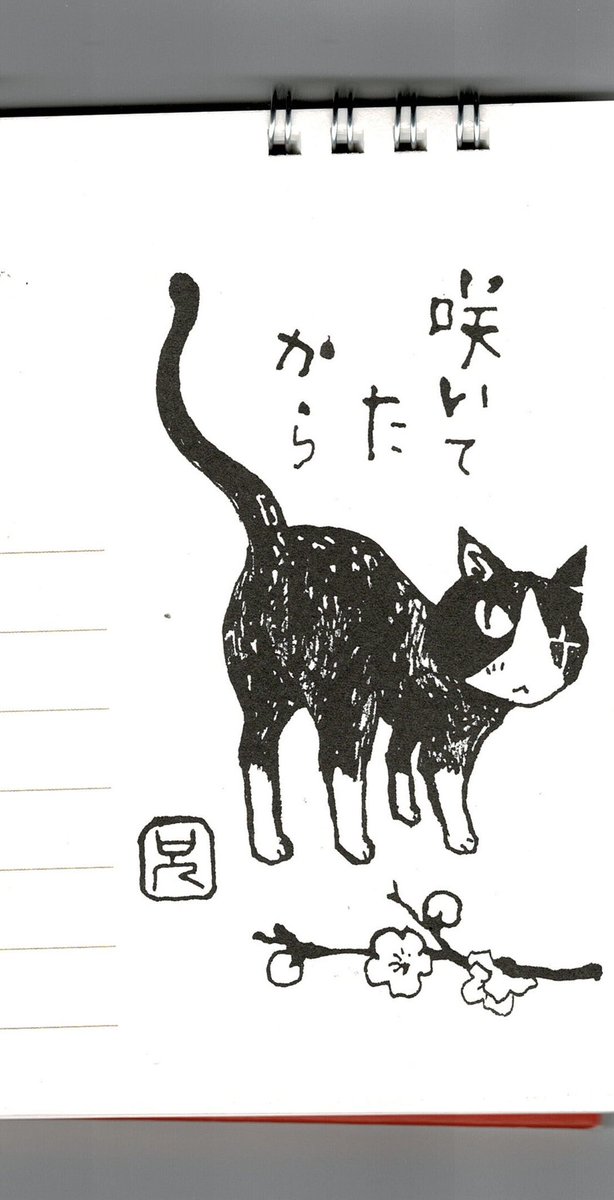 咲いて
た
から